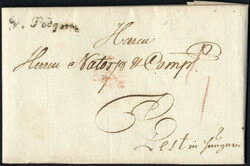 V. Podgorze
Herrn
Herrn Natorp & Comp.
Pest in Hungarn